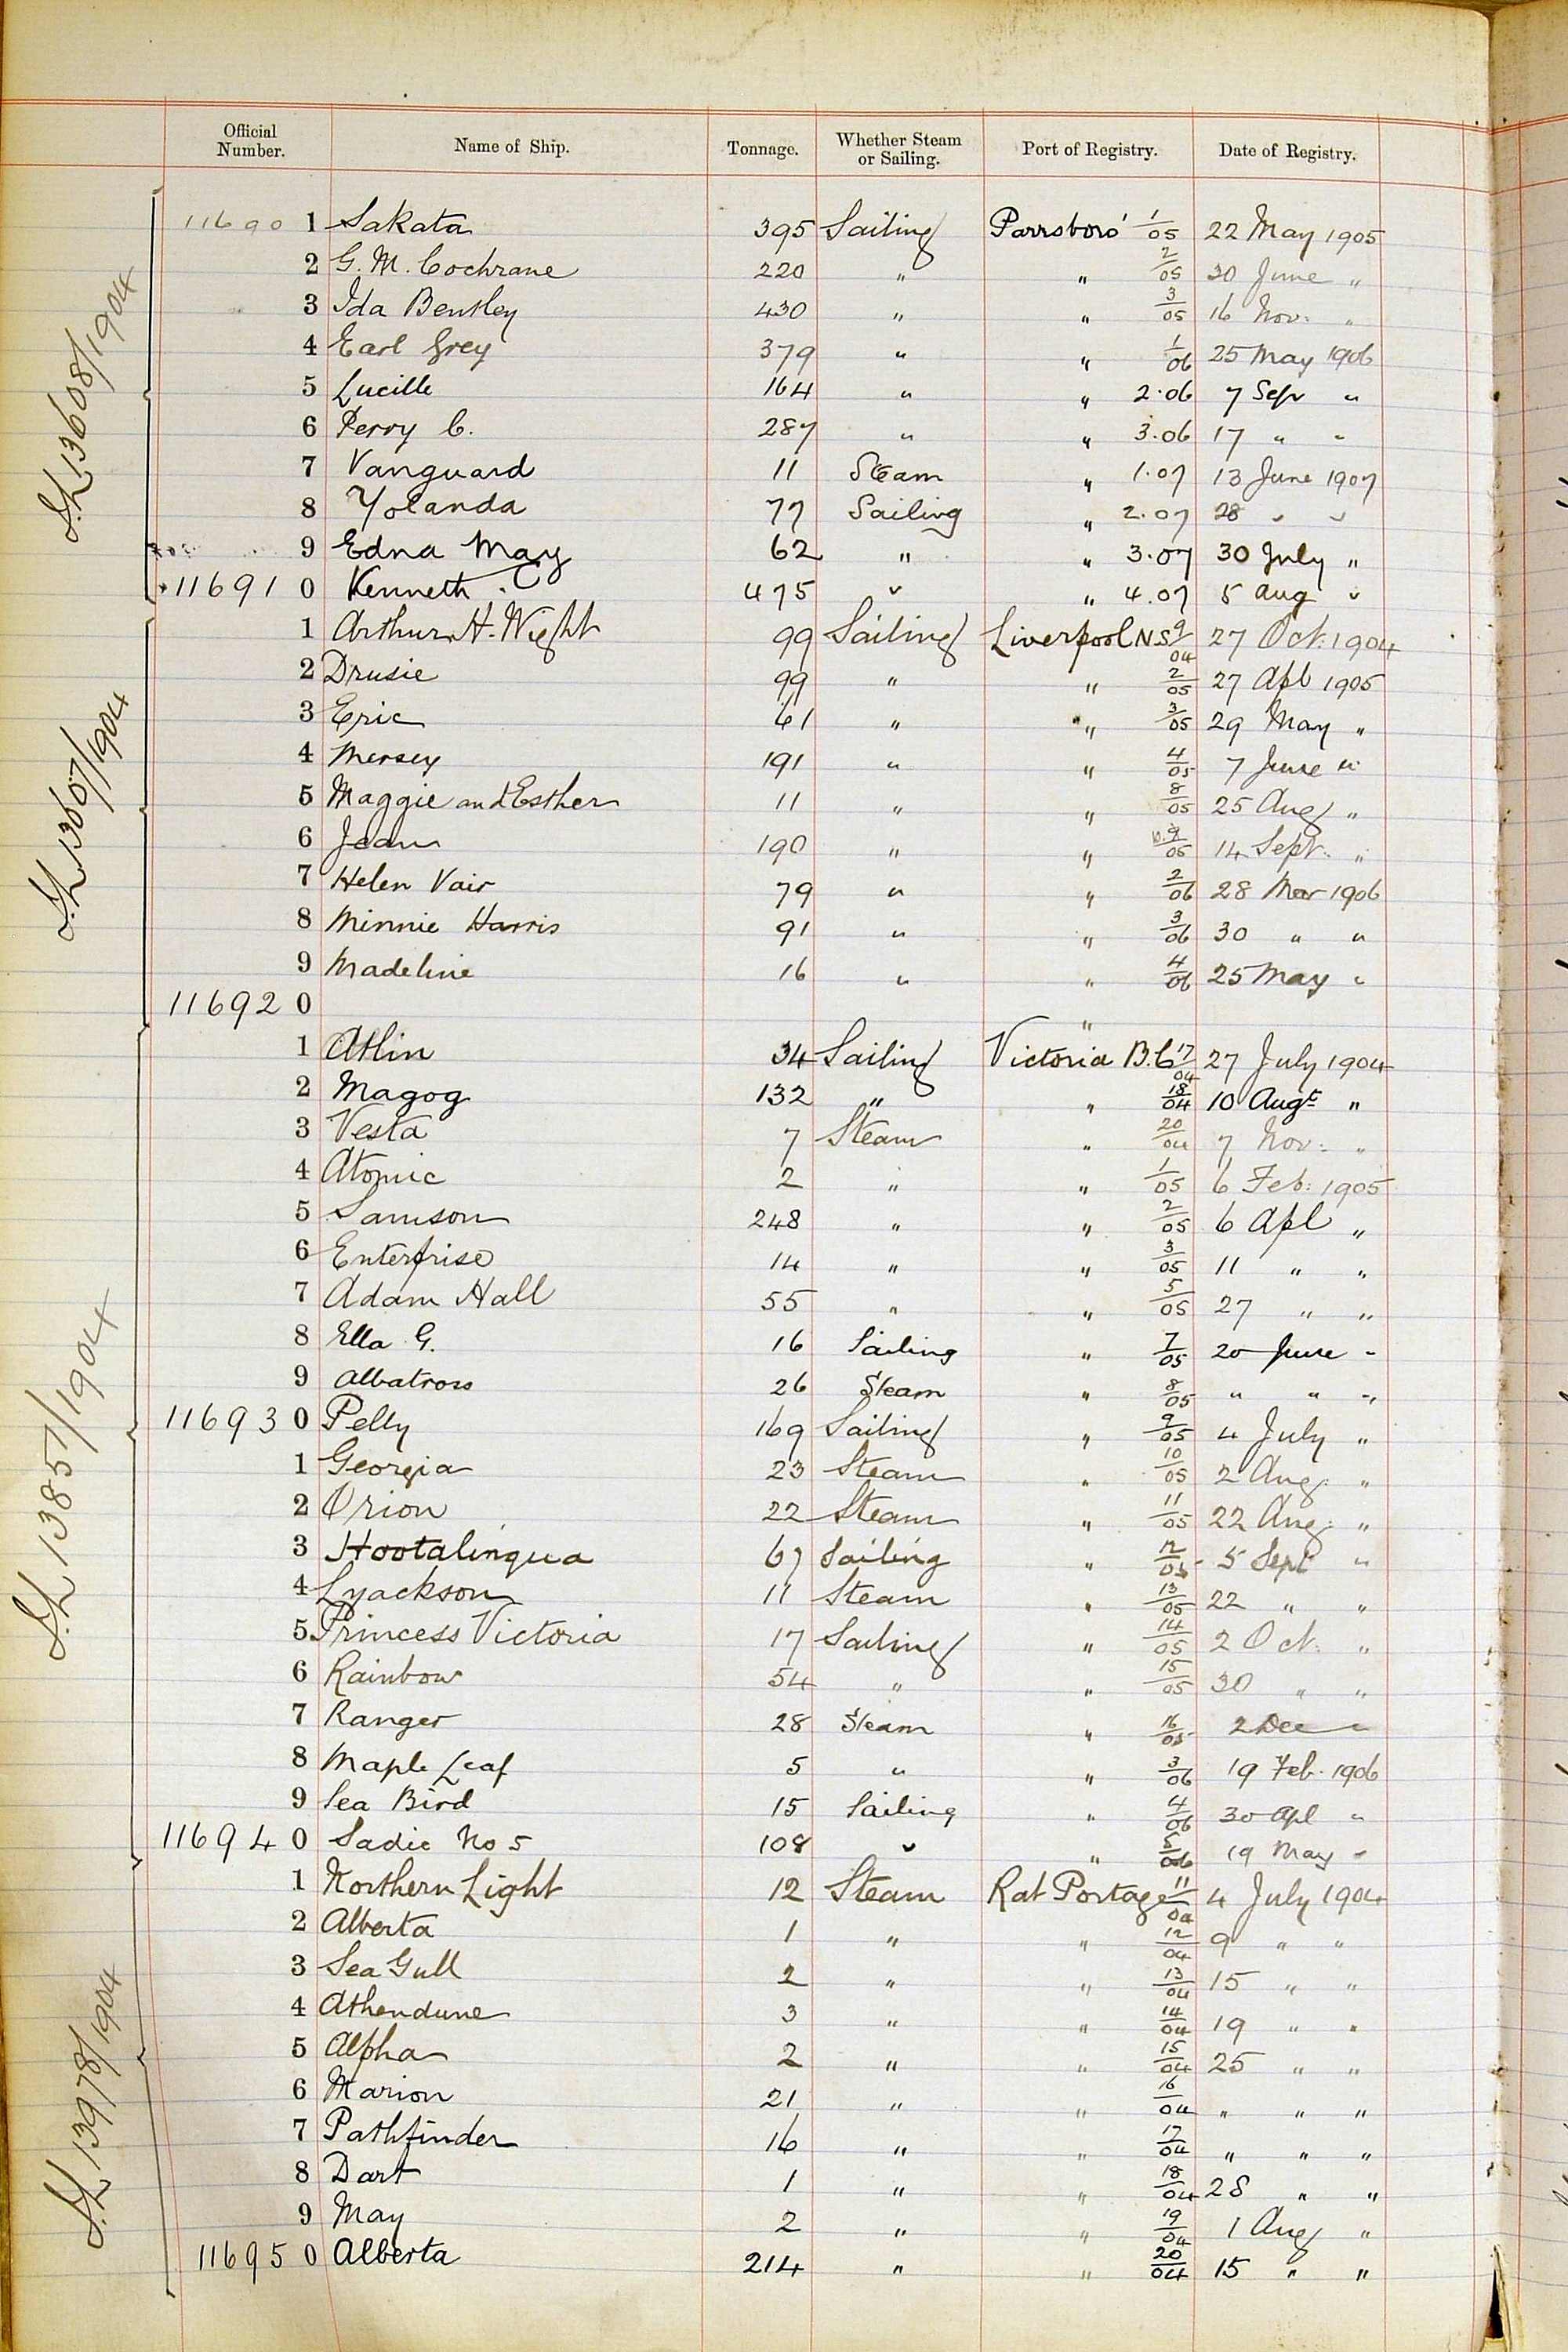 Official Number. Name of Ship. Tonnage. Whether Steam or Sailing. Port of Registry. Date of Registry.
S.L 13608/1904
11690 1 Sakata 395 Sailing Parrsboro' 1/05 22 May 1905
2 G. M. Cochrane 220 " " 2/05 30 June "
3 Ida Bentley 430 " " 3/05 16 Nov: "
4 Earl Grey 379 " " 1/06 25 May 1906
5 Lucille 164 " " 2.06 7 Sep "
6 Percy C. 287 " " 3.06 17 " "
7 Vanguard 11 Steam " 1.07 13 June 1907
8 Yolanda 77 Sailing " 2.07 28 " "
9 Edna May 62 " " 3.07 30 July "
11691 0 Kenneth C 475 " " 4.07 5 Aug "
S.L 13607/1904
1 Arthur H. Wight 99 Sailing Liverpool N.S 9/04 27 Oct: 1904
2 Drusie 99 " " 2/05 27 Apl 1905
3 Eric 61 " " 3/05 29 May "
4 Mersey 191 " " 4/05 7 June "
5 Maggie and Esther 11 " " 8/05 25 Aug "
6 Jean 190 " " 9/05 14 Sept. "
7 Helen Vair 79 " " 2/06 28 Mar 1906
8 Minnie Harris 91 " " 3/06 30 " "
9 Madeline 16 " " 4/06 25 May "
11692 0 "
S.L 13857/1904
1 Atlin 34 Sailing Victoria B.C 17/04 27 July 1904
2 Magog 132 " " 18/04 10 Augt "
3 Vesta 7 Steam " 20/04 7 Nov: "
4 Atomic 2 " " 1/05 6 Feb: 1905
5 Samson 248 " " 2/05 6 Apl "
6 Enterprise 14 " " 3/05 11 " "
7 Adam Hall 55 " " 5/05 27 " "
8 Ella G. 16 Sailing " 7/05 20 June "
9 Albatross 26 Steam " 8/05 " " "
11693 0 Pelly 169 Sailing " 9/05 4 July "
1 Georgia 23 Steam " 10/05 2 Aug: "
2 Orion 22 Steam " 11/05 22 Aug: "
3 Hootalinqua 67 Sailing " 12/05 5 Sept "
4 Lyackson 11 Steam " 13/05 22 " "
5 Princess Victoria 17 Sailing " 14/05 2 Oct: "
6 Rainbow 54 " " 15/05 30 " "
7 Ranger 28 Steam " 16/05 2 Dec "
8 Maple Leaf 5 " " 3/06 19 Feb. 1906
9 Sea Bird 15 Sailing " 4/06 30 Apl "
11694 0 Sadie No 5 108 " " 5/06 19 May "
S.L 13978/1904
1 Northern Light 12 Steam Rat Portage 11/04 4 July 1904
2 Alberta 1 " " 12/04 9 " "
3 Sea Gull 2 " " 13/04 15 " "
4 Athendune 3 " " 14/04 19 " "
5 Alpha 2 " " 15/04 25 " "
6 Marion 21 " " 16/04 " " "
7 Pathfinder 16 " " 17/04 " " "
8 Dart 1 " " 18/04 28 " "
9 May 2 " " 19/04 1 Aug "
11695 0 Alberta 214 " " 20/04 15 " "